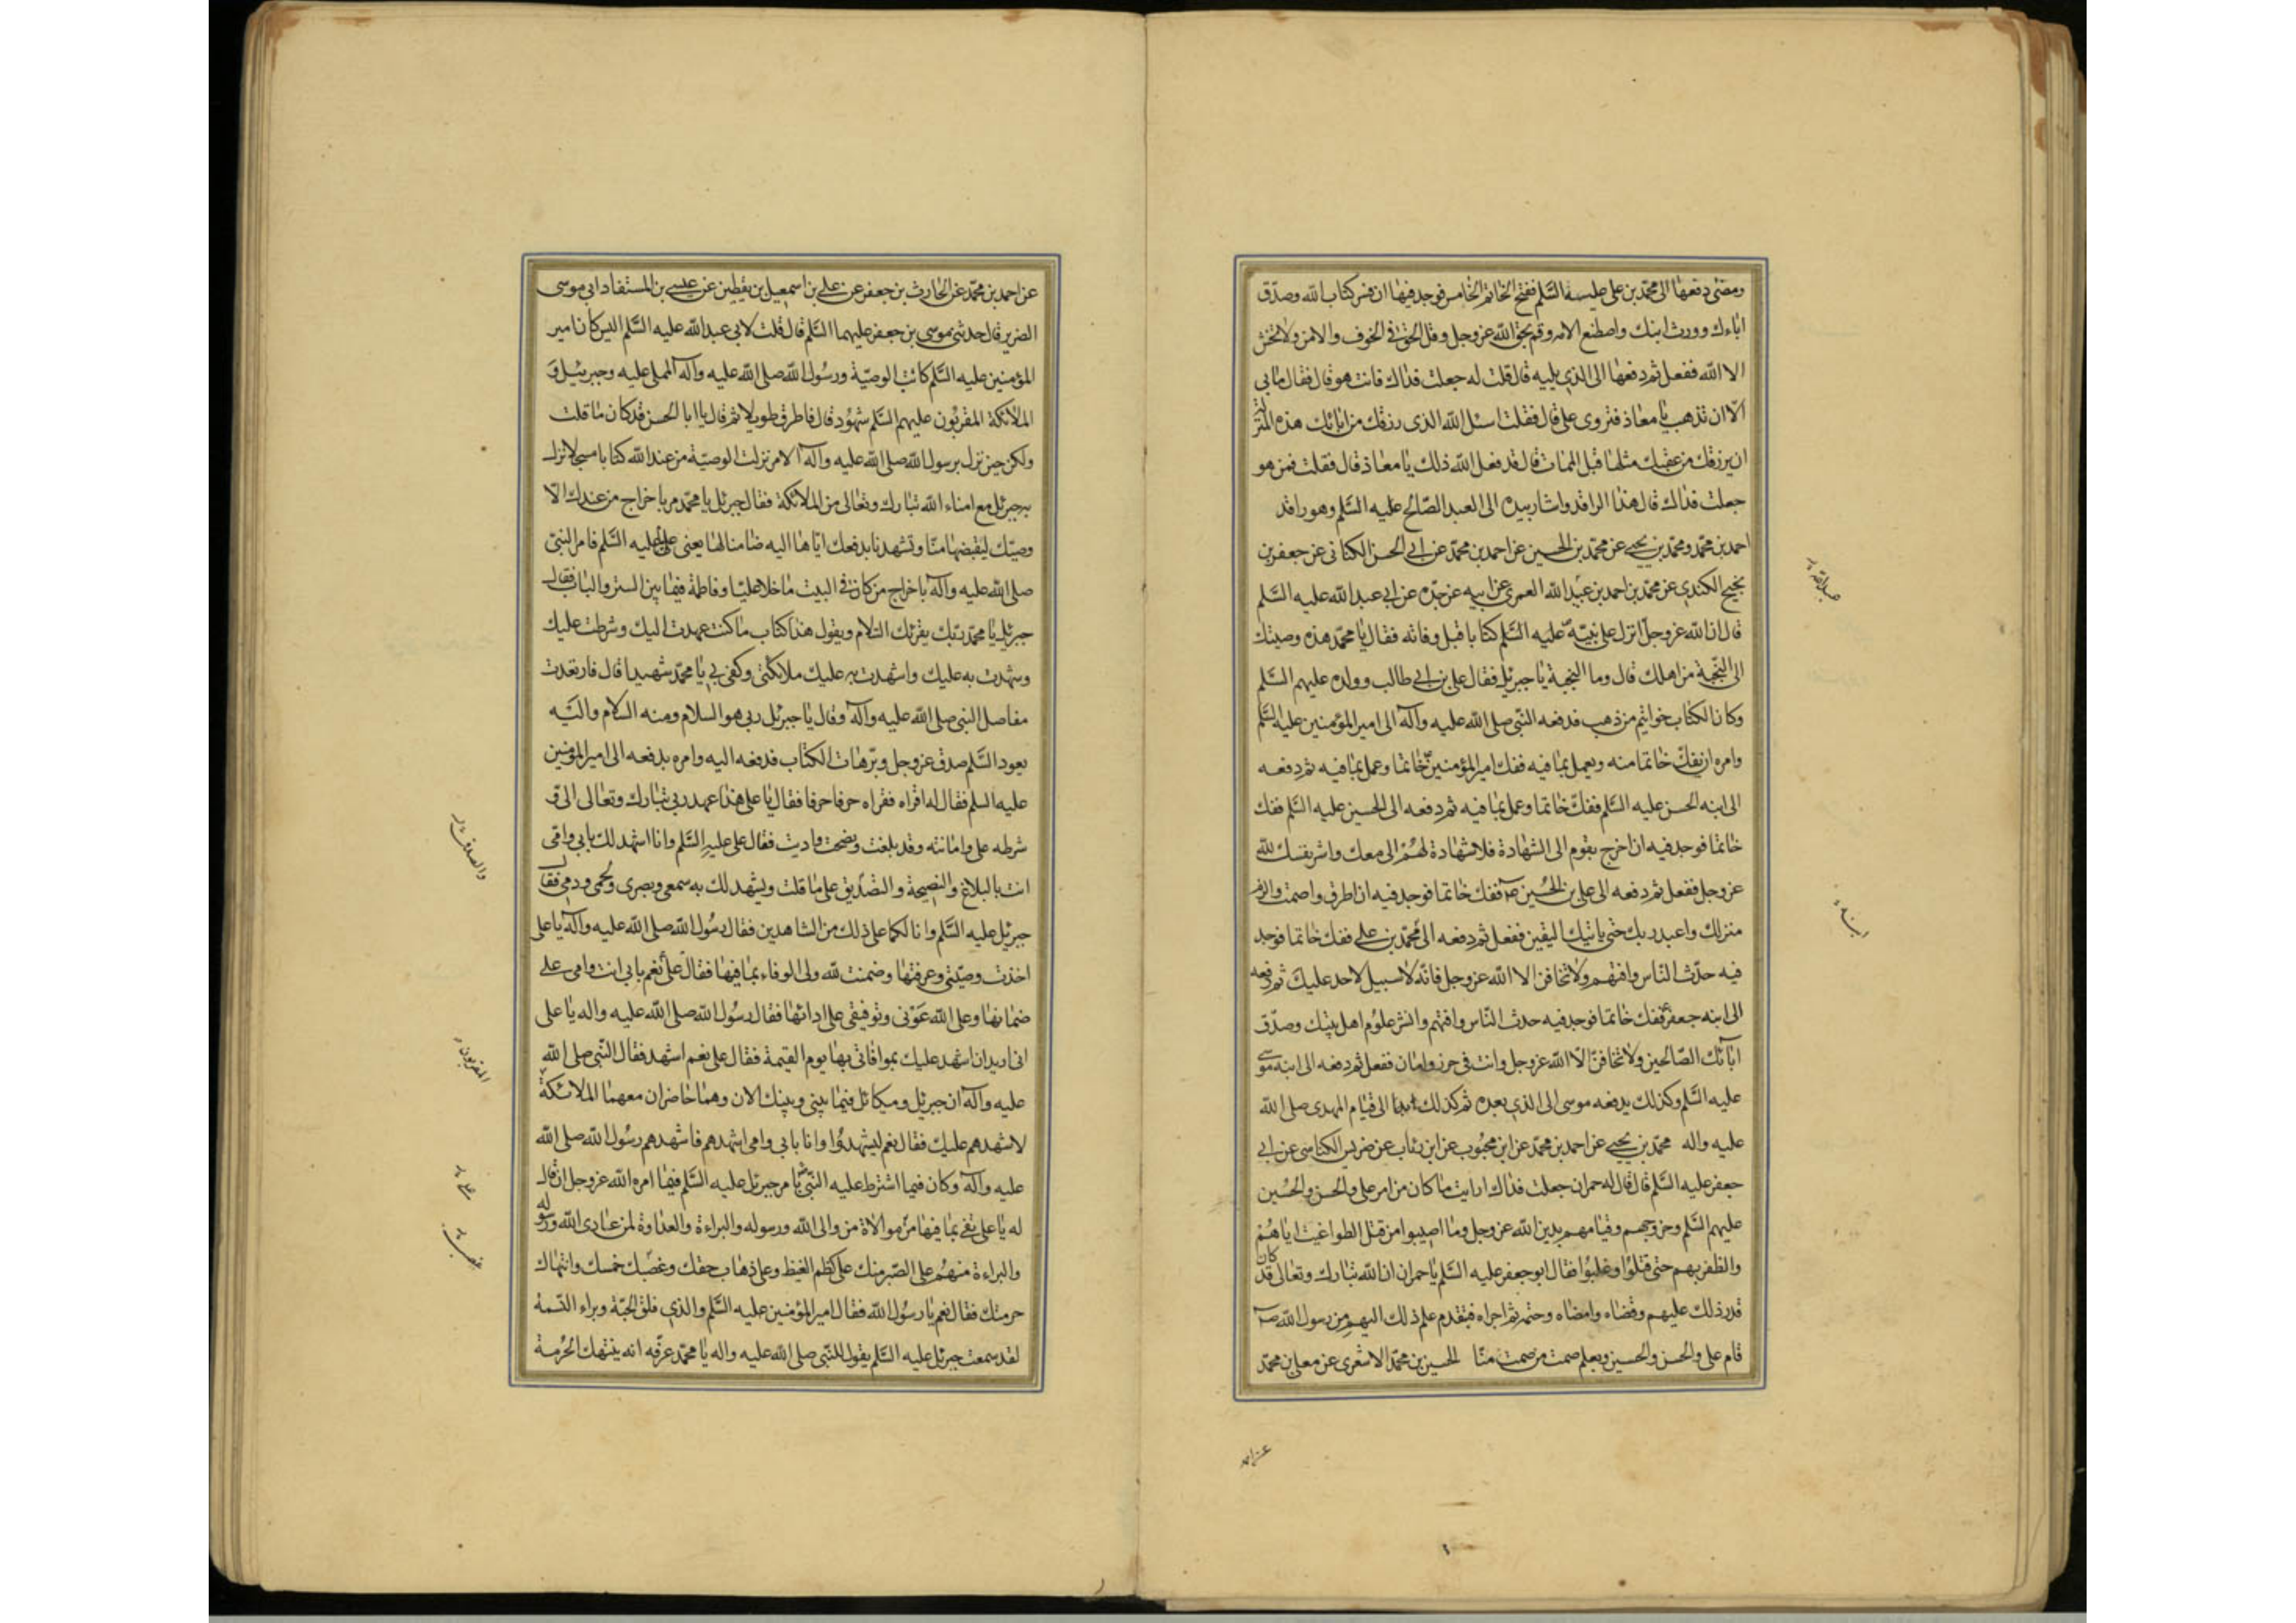 ومضى دفعها الى محمد بن علي عليه السلم ففتح الخاتم الخامس فوجد فيها ان فسر كتاب الله وصدق
اباءك وورث ابنك واصطنع الامه وقم بحق الله عز وجل وقل الحق في الخوف والامن ولا تخش
الا الله ففعل ثم دفعها الى الذي يليه قال قلت له جعلت فداك فانت هو قال فقال ما بي
الا ان تذهب يا معاذ فتروى على قال فقلت اسئل الله الذى رزقك من ابائك هذه المنزلة
ان يرزقك من عقبك مثلها قبل الممات قال قد فعل الله ذلك يا معاذ قال فقلت فمن هو
جعلت فداك قال هذا الراقد واشار بيده الى العبد الصالح عليه السلم وهو راقد
احمد بن محمد ومحمد بن يحيى عن محمد بن الحسين عن احمد بن محمد عن ابي الحسن الكنانى عن جعفر بن
نجيح الكندي عن محمد بن احمد بن عبيد الله العمري عن ابيه عن جده عن ابي عبد الله عليه السلم
قال ان الله عز وجل انزل على نبيه عليه السلم كتابا قبل وفاته فقال يا محمد هذه وصيتك
الى النجبة من اهلك قال وما النجبة يا جبرئل فقال علي بن ابي طالب وولده عليهم السلم
وكان الكتاب خواتيم من ذهب فدفعه النبي صلى الله عليه وآله الى امير المؤمنين عليه السلم
وامره ان يفك خاتما منه ويعمل بما فيه ففك امير المؤمنين خاتما وعمل بما فيه ثم دفعه
الى ابنه الحسن عليه السلم ففك خاتما وعمل بما فيه ثم دفعه الى الحسين عليه السلم ففك
خاتما فوجد فيه ان اخرج بقوم الى الشهادة فلا شهادة لهم الا معك واشر نفسك لله
عز وجل ففعل ثم دفعه الى علي بن الحسين ففك خاتما فوجد فيه ان اطرق واصمت والزم
منزلك واعبد ربك حتى ياتيك اليقين ففعل ثم دفعه الى محمد بن علي ففك خاتما فوجد
فيه حدث الناس وافتهم ولا تخافن الا الله عز وجل فانه لا سبيل لاحد عليك ثم دفعه
الى ابنه جعفر ففك خاتما فوجد فيه حدث الناس وافتهم وانشر علوم اهل بيتك وصدق
ابائك الصالحين ولا تخافن الا الله عز وجل وانت في حرز وامان ففعل ثم دفعه الى ابنه موسى
عليه السلم وكذلك يدفعه موسى الى الذي بعده ثم كذلك ابدا الى قيام المهدى صلى الله
عليه واله محمد بن يحيى عن احمد بن محمد عن ابن محبوب عن ابن رئاب عن ضريس الكناسى عن ابي
جعفر عليه السلم قال قال له حمران جعلت فداك ارايت ما كان من امر علي والحسن والحسين
عليهم السلم وخروجهم وقيامهم بدين الله عز وجل وما اصيبوا من قبل الطواغيت اياهم
والظفر بهم حتى قتلوا وغلبوا فقال ابو جعفر عليه السلم يا حمران ان الله تبارك وتعالى قد كان
قدر ذلك عليهم وقضاه وامضاه وحتمه ثم اجراه فبتقدم علم ذلك اليهم من رسول الله
قام علي والحسن والحسين وبعلم صمت من صمت منا الحسين بن محمد الاشعري عن معلى بن محمد
عن احمد
عن احمد بن محمد عن الحارث بن جعفر عن علي بن اسمعيل بن يقطين عن عيسى بن المستفاد ابي موسى
الضرير قال حدثني موسى بن جعفر عليهما السلم قال قلت لابي عبد الله عليه السلم اليس كان امير
المؤمنين عليه السلم كاتب الوصية ورسول الله صلى الله عليه وآله المملى عليه وجبرئيل و
الملائكة المقربون عليهم السلم شهود قال فاطرق طويلا ثم قال يا ابا الحسن قد كان ما قلت
ولكن حين نزل برسول الله صلى الله عليه وآله الامر نزلت الوصية من عند الله كتابا مسجلا نزل
به جبرئل مع امناء الله تبارك وتعالى من الملائكة فقال جبرئل يا محمد مر باخراج من عندك الا
وصيك ليقبضها منا وتشهدنا بدفعك اياها اليه ضامنا لها يعنى عليا عليه السلم فامر النبي
صلى الله عليه وآله باخراج من كان في البيت ما خلا عليا وفاطمة فيما بين الستر والباب فقال
جبرئل يا محمد ربك يقرئك السلام ويقول هذا كتاب ما كنت عهدت اليك وشرطت عليك
وشهدت به عليك واشهدت به عليك ملائكتى وكفى بي يا محمد شهيدا قال فارتعدت
مفاصل النبي صلى الله عليه وآله وقال يا جبرئل ربي هو السلام ومنه السلام واليه
يعود السلم صدق عز وجل وبر هات الكتاب فدفعه اليه وامره بدفعه الى امير المؤمنين
عليه السلم فقال له اقراه فقراه حرفا حرفا فقال يا علي هذا عهد ربي تبارك وتعالى الى و
شرطه علي وامانته وقد بلغت ونصحت واديت فقال علي عليه السلم وانا اشهد لك بابي وامي
انت بالبلاغ والنصيحة والتصديق على ما قلت ويشهد لك به سمعي وبصرى ولحمى ودمى فقال
جبرئل عليه السلم وانا لكما على ذلك من الشاهدين فقال رسول الله صلى الله عليه وآله يا علي
اخذت وصيتي وعرفتها وضمنت لله ولى الوفاء بما فيها فقال علي نعم بابي انت وامى علي
ضمانها وعلى الله عونى وتوفيقى على ادائها فقال رسول الله صلى الله عليه واله يا علي
انى اريد ان اشهد عليك بموافاتى بها يوم القيمة فقال علي نعم اشهد فقال النبي صلى الله
عليه وآله ان جبرئل وميكائل فيما بيني وبينك الان وهما حاضران معهما الملائكة
لاشهدهم عليك فقال نعم ليشهدوا وانا بابي وامى اشهدهم فاشهدهم رسول الله صلى الله
عليه وآله وكان فيما اشترط عليه النبي بامر جبرئل عليه السلم فيما امره الله عز وجل ان قال
له يا علي تفي بما فيها من موالاة من والى الله ورسوله والبراءة والعداوة لمن عادى الله ورسوله
والبراءة منهم على الصبر منك على كظم الغيظ وعلى ذهاب حقك وغصبك خمسك وانتهاك
حرمتك فقال نعم يا رسول الله فقال امير المؤمنين عليه السلم والذي فلق الحبة وبراء النسمة
لقد سمعت جبرئل عليه السلم يقول للنبي صلى الله عليه واله يا محمد عرفه انه ينتهك الحرمة
والصدق
المقربون